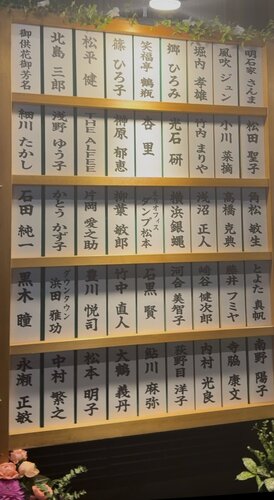 明石家 さんま
風吹 ジュン
堀内 孝雄
郷 ひろみ
笑福亭 鶴瓶
篠 ひろ子
松平 健
北島 三郎
御供花御芳名
松田 聖子
小川 菜摘
竹内 まりや
光石 研
杏 里
榊原 郁恵
THE ALFEE
浅野 ゆう子
細川 たかし
角松 敏生
高橋 克典
浅沼 正人
横浜銀蝿
ダンプ 松本
柳葉 敏郎
片岡 愛之助
かとう かず子
石田 純一
とよた 真帆
藤井 フミヤ
嶋谷 健次郎
河合 美智子
石黒 賢
竹中 直人
豊川 悦司
ダウンタウン
浜田 雅功
黒木 瞳
南野 陽子
寺脇 康文
内村 光良
荻野目 洋子
鮎川 麻弥
大鶴 義丹
松本 明子
中村 繁之
永瀬 正敏